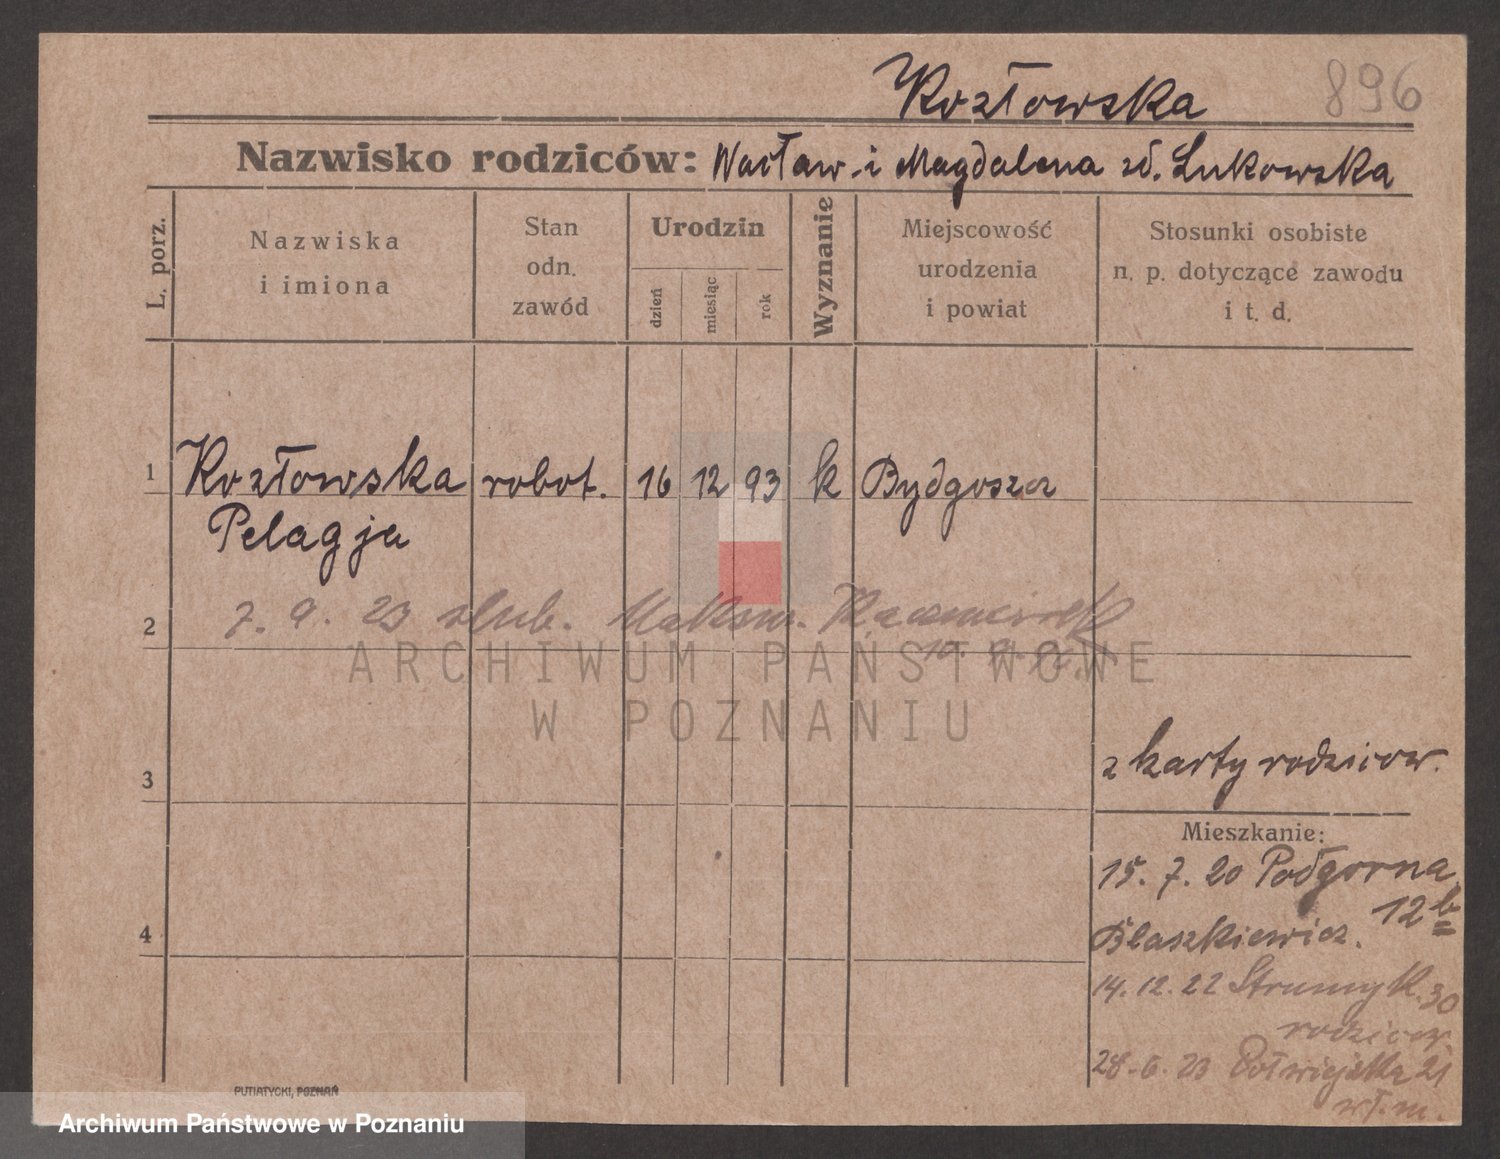 Kozłowska 896
Nazwisko rodziców: Wacław i Magdalena zd. Łukowska
L. porz.
Nazwiska i imiona
Stan odn. zawód
Urodzin
dzień
miesiąc
rok
Wyznanie
Miejscowość urodzenia i powiat
Stosunki osobiste n. p. dotyczące zawodu i t. d.
1 Kozłowska robot. 16 12 93 k Bydgoszcz
Pelagja
7. 9. 23 ślub. Maksm.
2
ARCHIWUM PAŃSTWOWE
W POZNANIU
z karty rodziców.
3
Mieszkanie:
15. 7. 20 Podgorna
12 b
Błaszkiewicz.
4
14. 12. 22 Strumyk. 30
rodziców.
28. 6. 23 Półwiejska 21
wł. m.
PUTIATYCKI, POZNAŃ
Archiwum Państwowe w Poznaniu